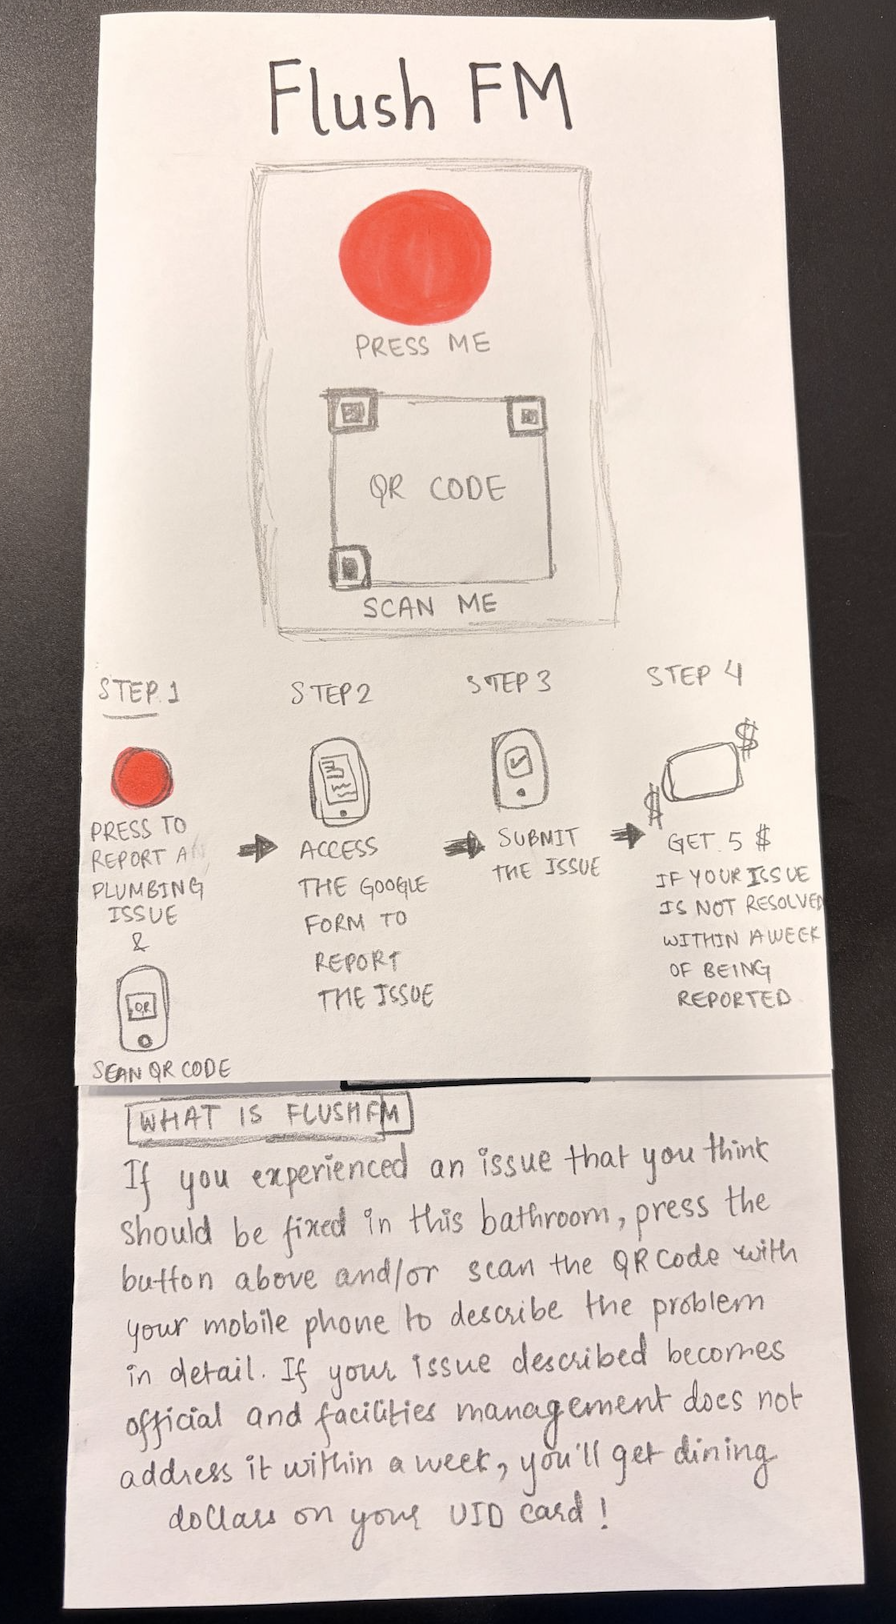 Flush FM
PRESS ME
QR CODE
SCAN ME
STEP 1
PRESS TO
REPORT AN
PLUMBING
ISSUE
&
QR
SCAN QR CODE
STEP 2
ACCESS
THE GOOGLE
FORM TO
REPORT
THE ISSUE
STEP 3
SUBMIT
THE ISSUE
STEP 4
$
$
GET 5 $
IF YOUR ISSUE
IS NOT RESOLVED
WITHIN A WEEK
OF BEING
REPORTED
WHAT IS FLUSHFM
If you experienced an issue that you think
should be fixed in this bathroom, press the
button above and/or scan the QR code with
your mobile phone to describe the problem
in detail. If your issue described becomes
official and facilities management does not
address it within a week, you'll get dining
dollars on your UID card!